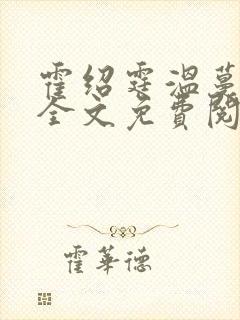 霍绍霆温蔓
全文免费阅
霍华德